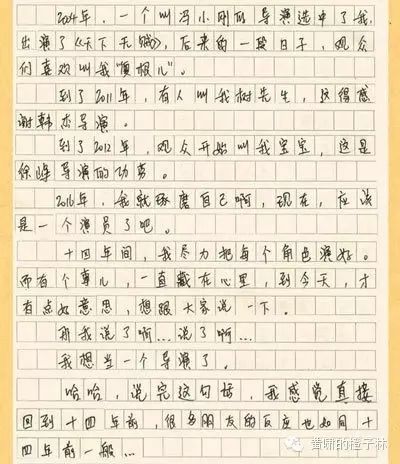 2004年，一个叫冯小刚的导演选中了我，
出演了《天下无贼》，后来的一段日子，观众
们喜欢叫我“傻根儿”。
到了2011年，有人叫我树先生，这得感
谢韩杰导演。
到了2012年，观众开始叫我宝宝，这是
徐峥导演的功劳。
2016年，我就琢磨自己啊，现在，应该
是一个演员了吧。
十四年间，我尽力把每个角色演好。
而有个事儿，一直藏在心里，到今天，才
有点好意思，想跟大家说一下。
那我说了啊…说了啊…
我想当一个导演了。
哈哈，说完这句话，我感觉直接
回到十四年前，很多朋友的反应也如同十
四年前一般…
黄啸的橙子林